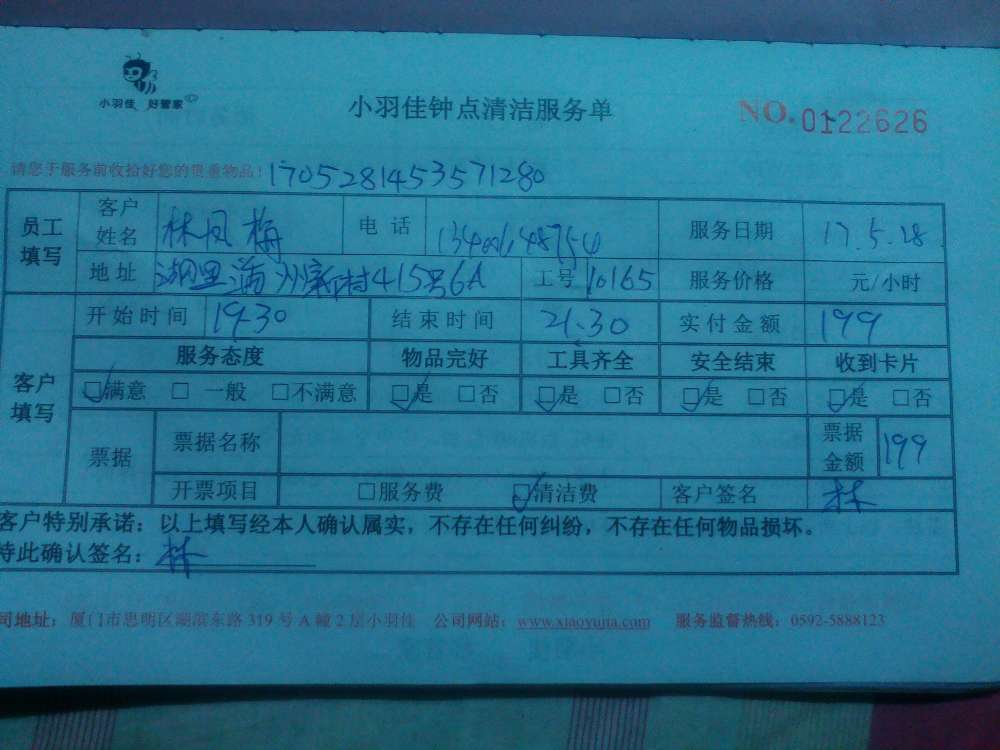 小羽佳 好管家
小羽佳钟点清洁服务单
NO. 0122626
请您于服务前收拾好您的贵重物品! 1705281453571280
员工填写 客户姓名 林凤梅 电话 服务日期 17.5.28
地址 湖里 415号6A 工号 10165 服务价格 元/小时
客户填写 开始时间 19.30 结束时间 21.30 实付金额 199
服务态度 物品完好 工具齐全 安全结束 收到卡片
☑满意 □一般 □不满意 ☑是 □否 ☑是 □否 ☑是 □否 ☑是 □否
票据 票据名称 票据金额 199
开票项目 □服务费 ☑清洁费 客户签名 林
客户特别承诺:以上填写经本人确认属实,不存在任何纠纷,不存在任何物品损坏。
特此确认签名:林
司地址:厦门市思明区湖滨东路319号A幢2层小羽佳 公司网站:www.xiaoyujia.com 服务监督热线:0592-5888123